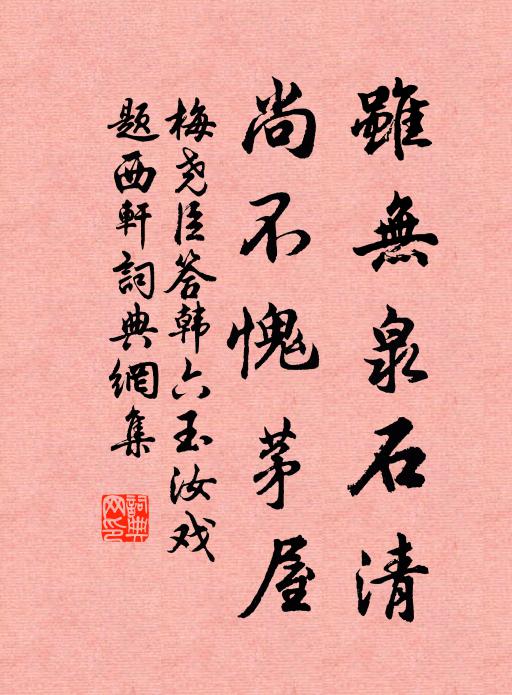 雖無泉石清
尚不愧茅屋
梅尧臣答韩六玉汝戏
题西軒詞典網集
詞典網印